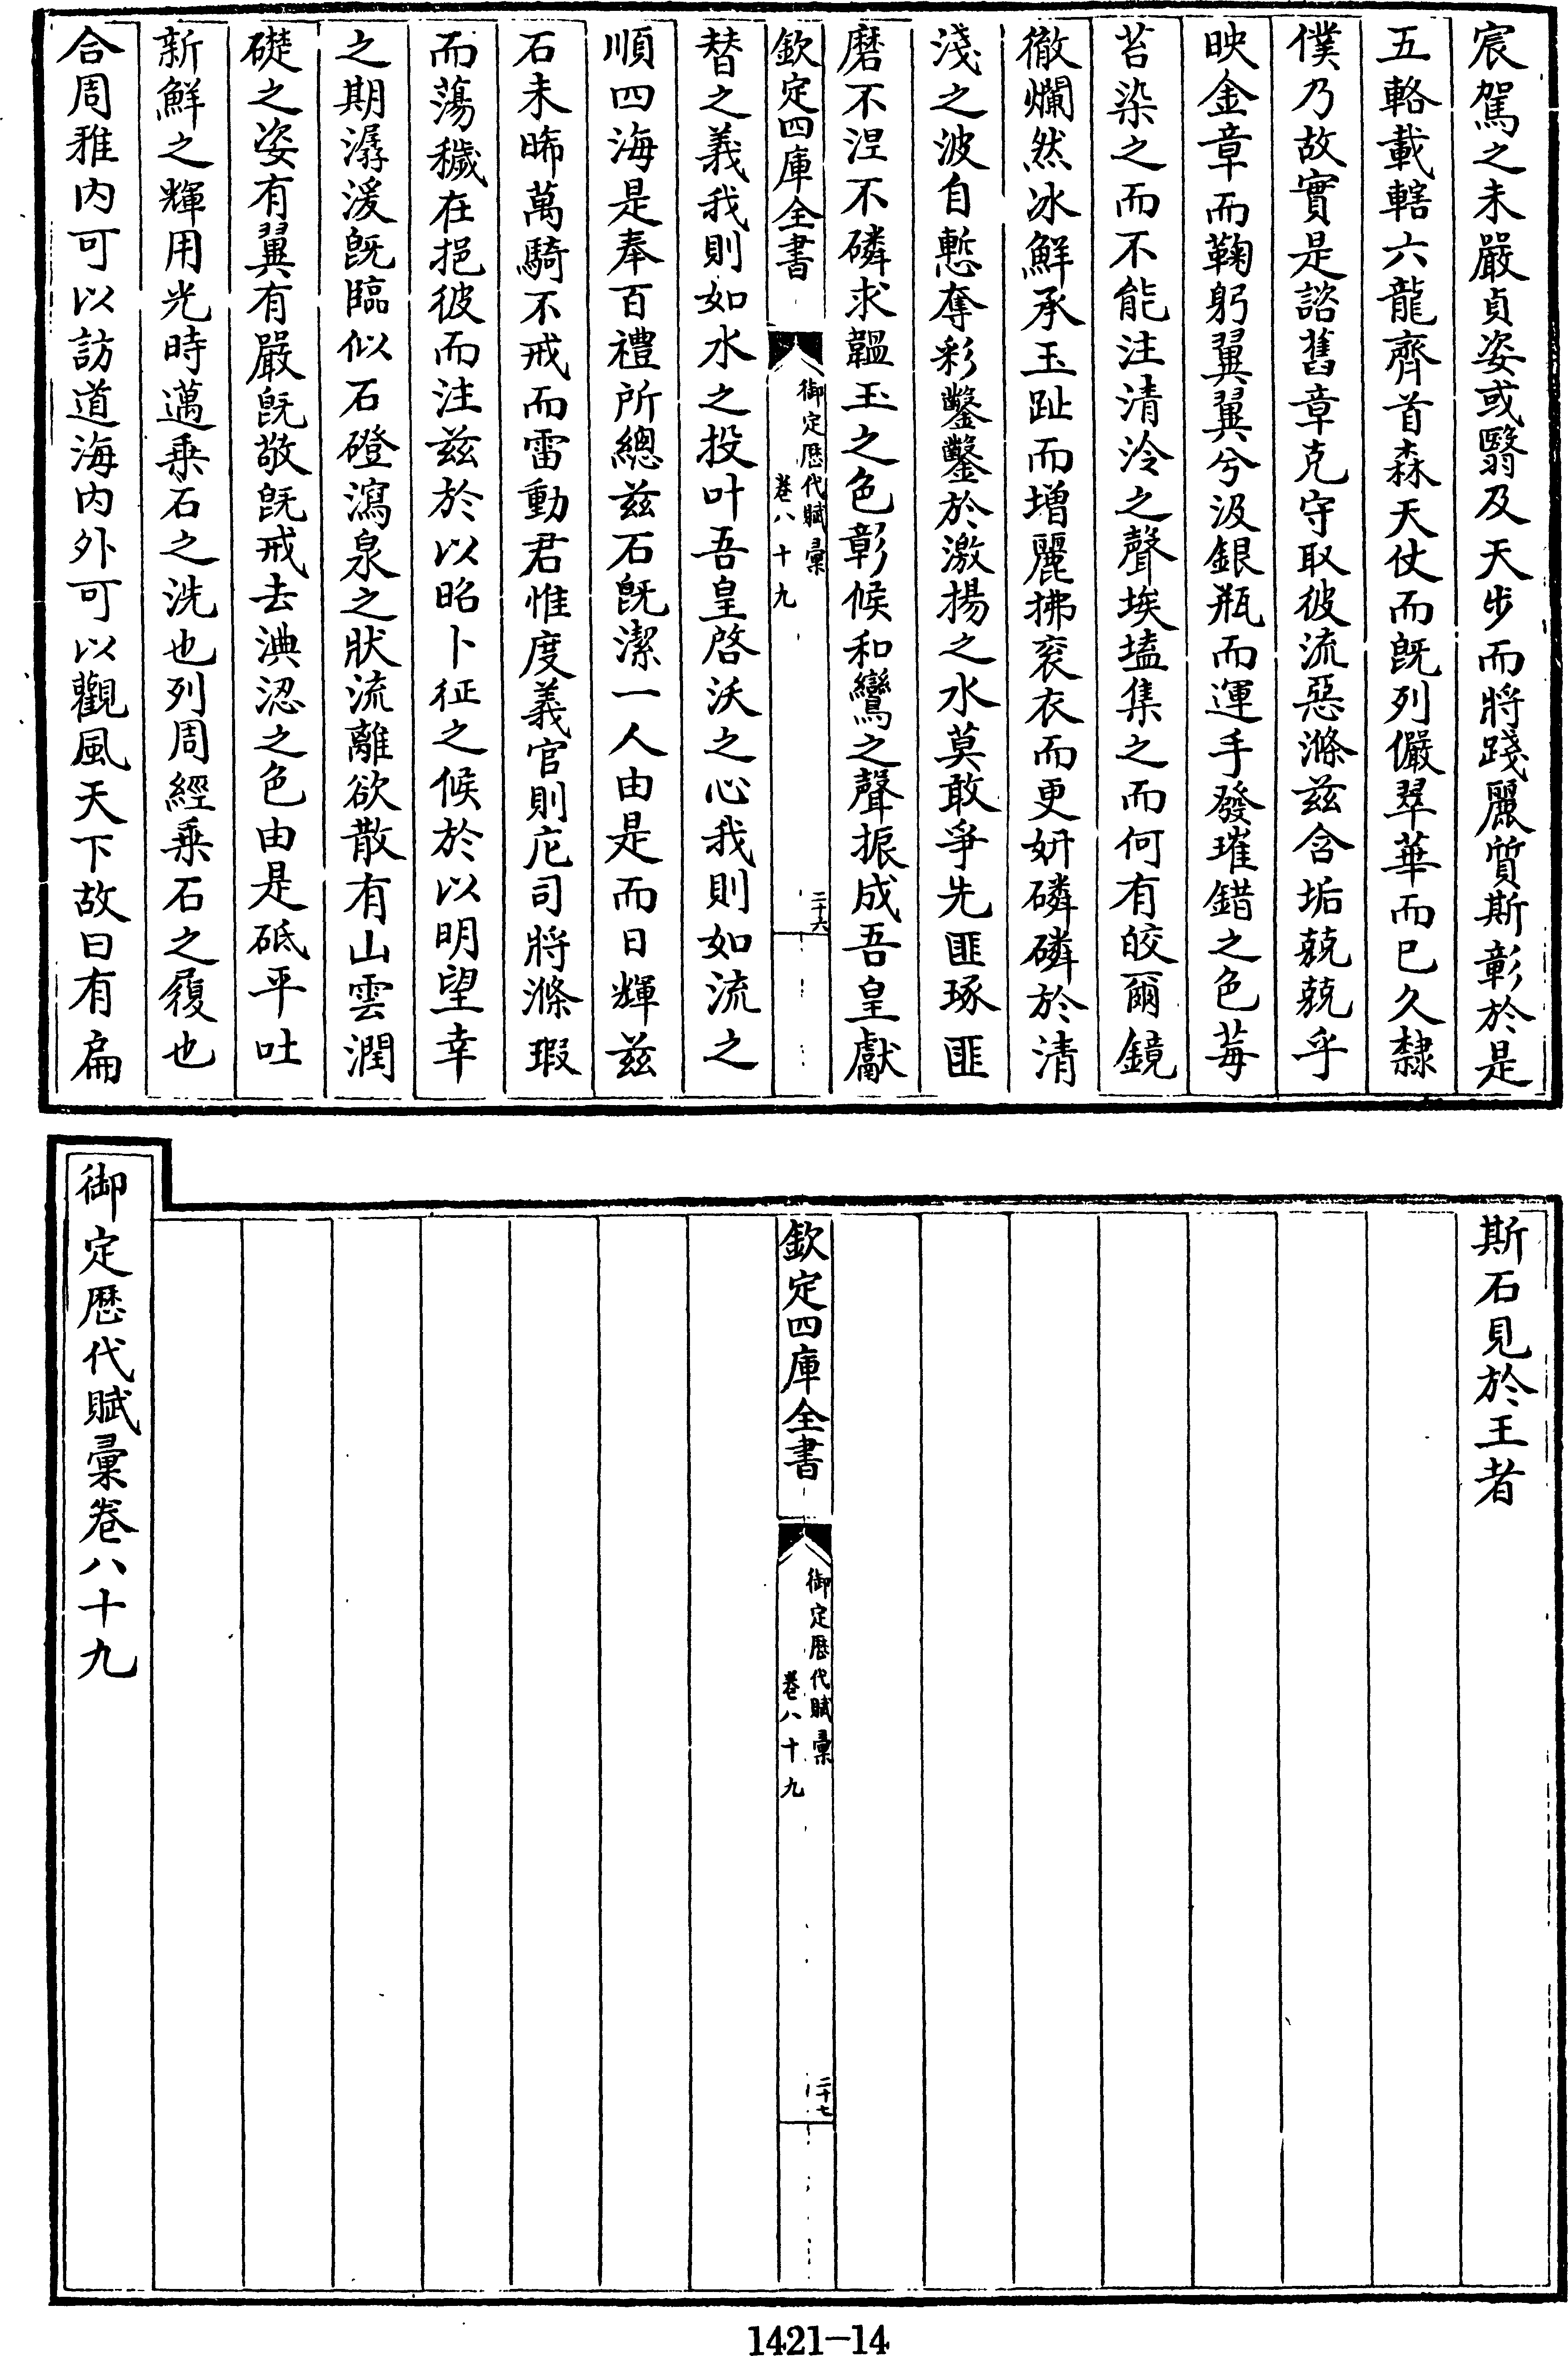 宸駕之未嚴貞姿或翳及天步而將踐麗質斯彰於是
五輅載轄六龍齊首森天仗而既列儼翠華而已久隸
僕乃故實是諮舊章克守取彼流惡滌兹含垢兢兢乎
映金章而鞠躬翼翼兮汲銀瓶而運手發璀錯之色莓
苔染之而不能注清泠之聲埃壒集之而何有皎爾鏡
徹爛然冰鮮承玉趾而增麗拂衮衣而更妍磷磷於清
淺之波自慙奪彩鑿鑿於激揚之水莫敢爭先匪琢匪
磨不涅不磷求韞玉之色彰候和鸞之聲振成吾皇獻
欽定四庫全書
御定歷代賦彙
卷八十九
二十六
替之義我則如水之投叶吾皇啓沃之心我則如流之
順四海是奉百禮所總兹石既潔一人由是而日輝兹
石未晞萬騎不戒而雷動君惟度義官則庀司將滌瑕
而蕩穢在挹彼而注兹於以昭卜征之候於以明望幸
之期潺湲既臨似石磴瀉泉之狀流離欲散有山雲潤
礎之姿有翼有嚴既敬既戒去淟涊之色由是砥平吐
新鮮之輝用光時邁乘石之洗也列周經乘石之履也
合周雅内可以訪道海内外可以觀風天下故曰有扁
斯石見於王者
欽定四庫全書
御定歷代賦彙
卷八十九
二十七
御定歷代賦彙卷八十九
1421-14